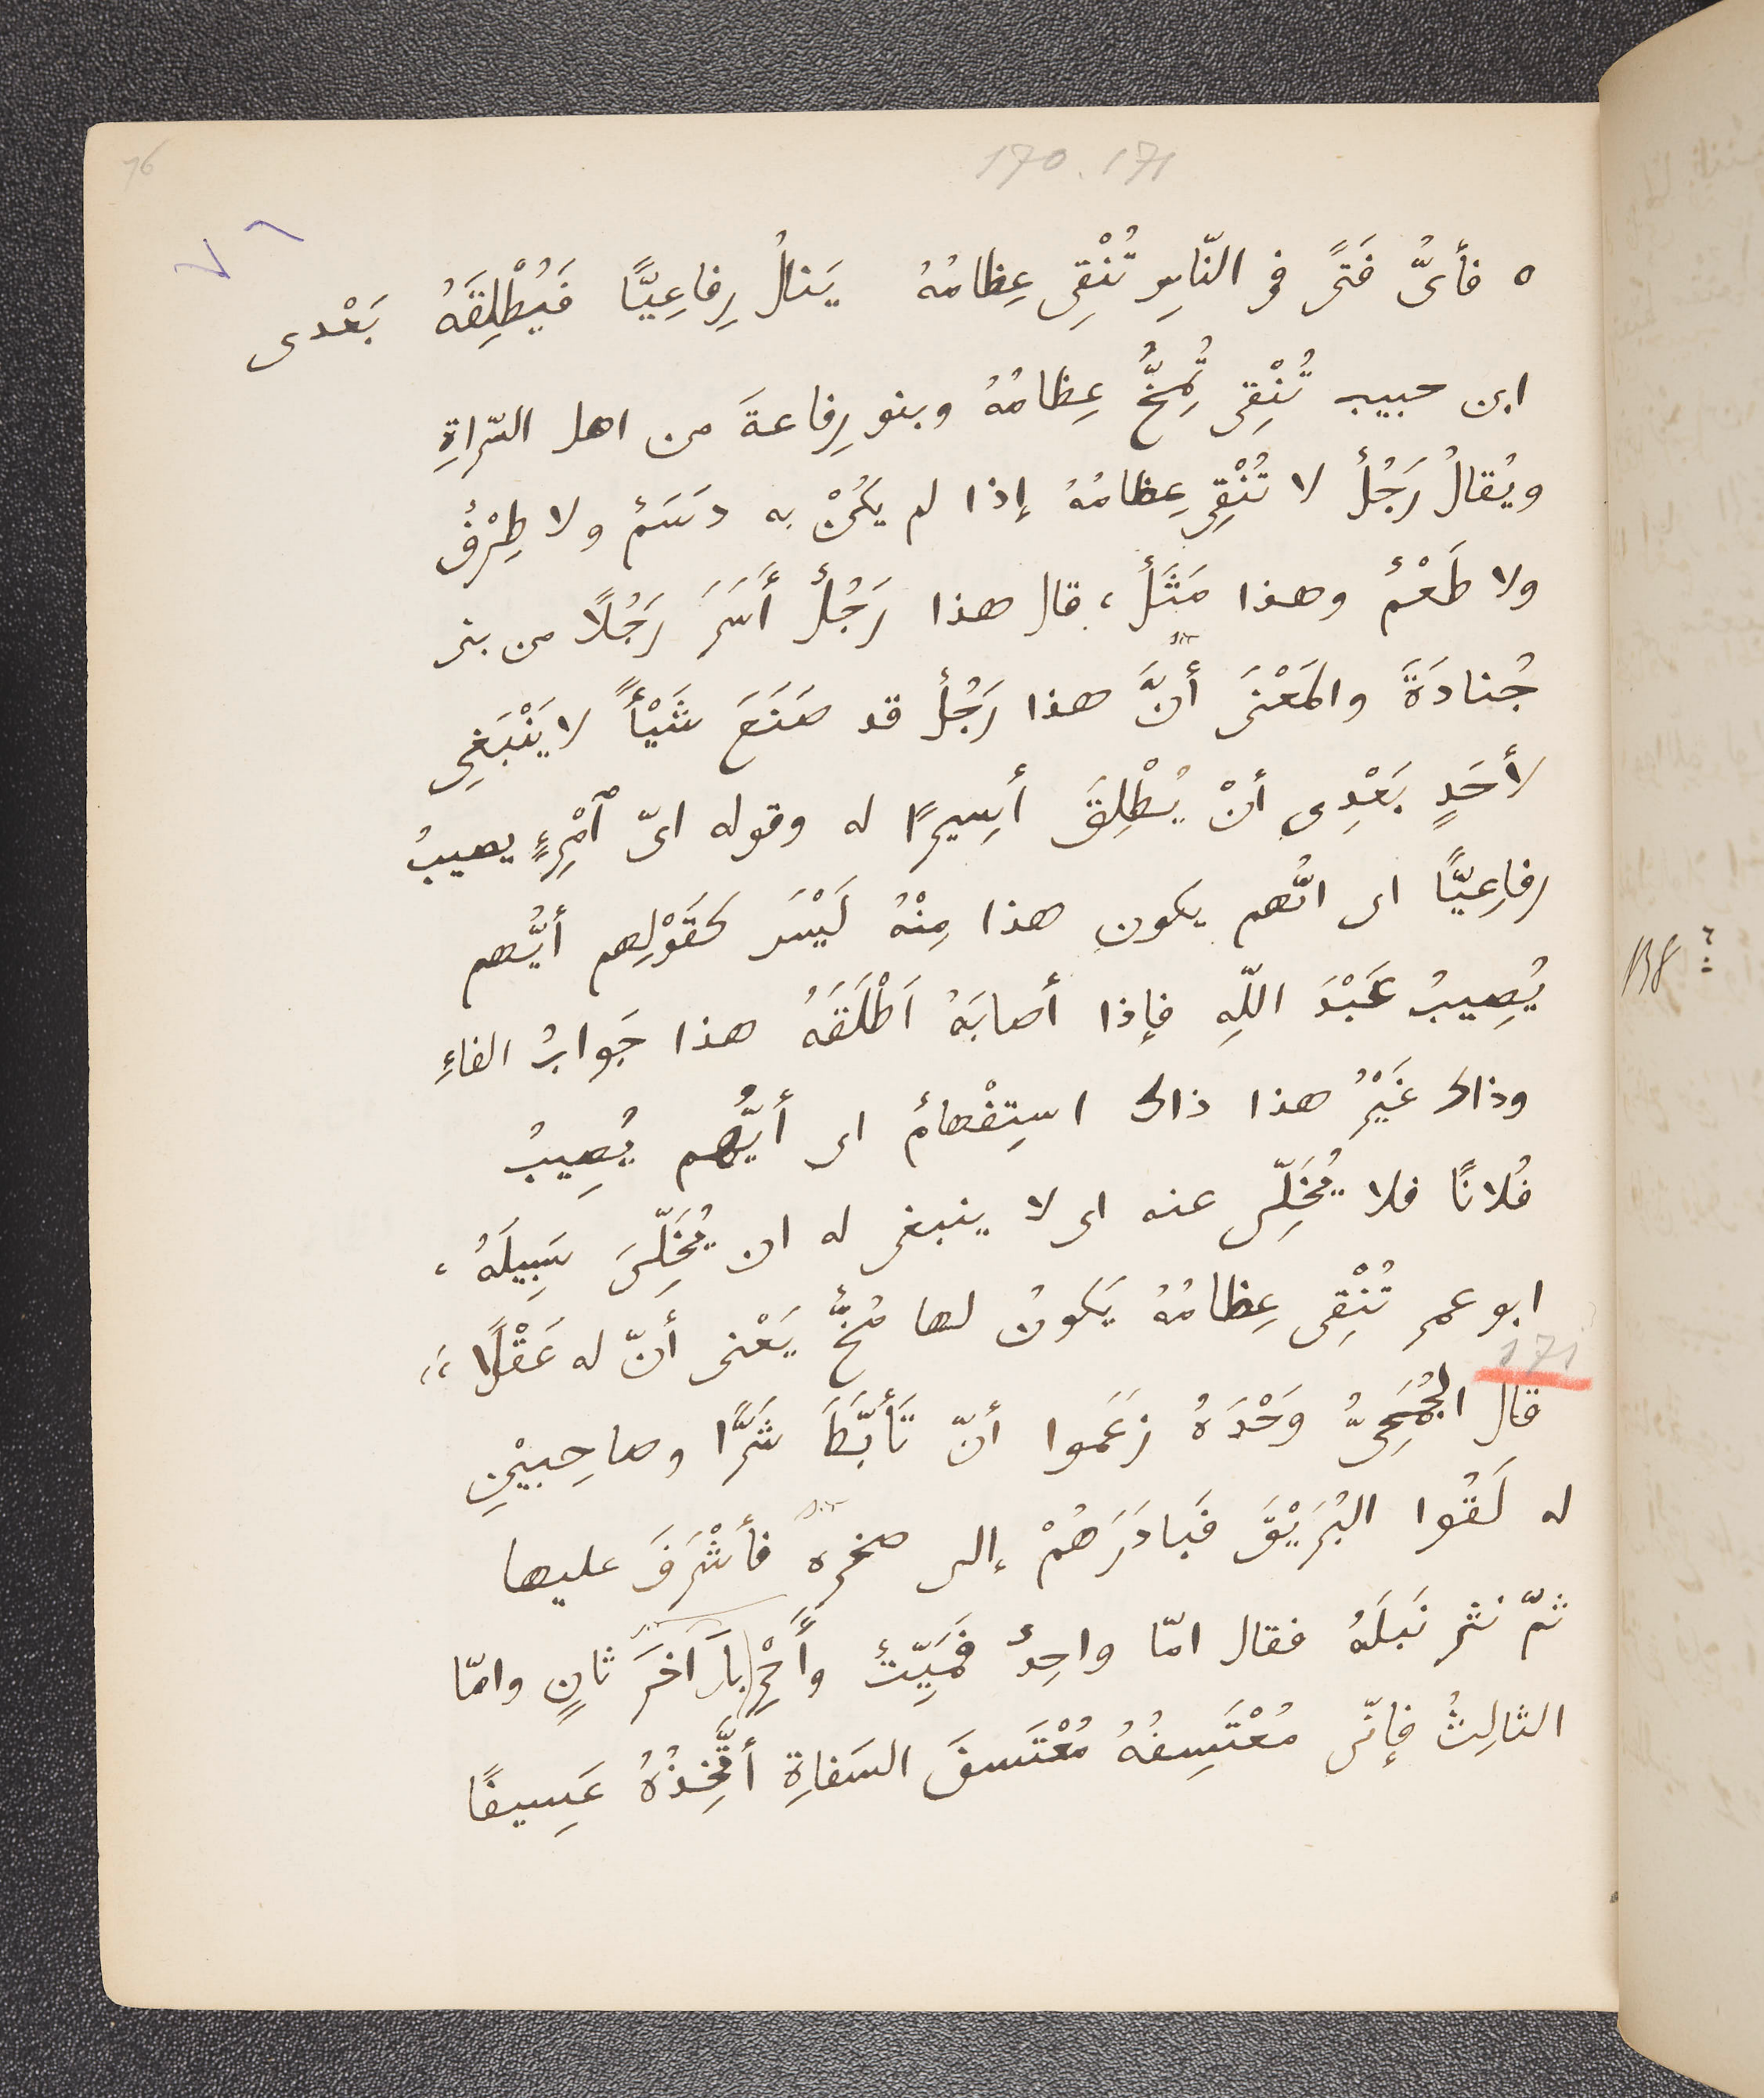 76
170. 171
٧٦
٥ فأىُّ فَتًى فى النّاسِ تُنْقِى عِظامُهُ يَنالُ رِفاعِيًّا فَيُطْلِقَهُ بَعْدى
ابن حبيب تُنْقِى تُمِخُّ عِظامُهُ وبنو رِفاعةَ من اهل السّراةِ
ويُقالُ رَجُلٌ لا تُنْقِى عِظامُهُ إذا لم يَكُنْ به دَسَمٌ ولا طِرْقٌ
ولا طَعْمٌ وهذا مَثَلٌ، قال هذا رَجُلٌ أَسَرَ رَجُلًا من بنى
جُنادَةَ والمَعْنَى أنَّ هذا رَجُلٌ قد صَنَعَ شَيْأً لا يَنْبَغِى
لأحَدٍ بَعْدِى أنْ يُطْلِقَ أسِيرًا له وقوله اىّ ٱمْرِءٍ يصيبُ
رفاعِيًّا اى انّهم يكون هذا مِنْهُ لَيْسَ كقَوْلِهم أيُّهم
يُصِيبُ عَبْدَ اللّهِ فإذا أصابَهُ اَطْلَقَهُ هذا جَوابُ الفاءِ
وذاك غَيْرُ هذا ذاك استِفْهامٌ اى أيُّهم يُصِيبُ
فُلانًا فلا يُخَلِّى عنه اى لا ينبغى له ان يُخَلِّىَ سَبِيلَهُ،
ابو عمر تُنْقِى عِظامُهُ يَكونُ لها مُخٌّ يَعْنى أنّ له عَقْلًا،،
171
قال الجُمَحِىُّ وَحْدَهُ زعَموا أنّ تَأَبَّطَ شَرًّا وصاحِبيْنِ
له لَقُوا البُرَيْقَ فَبادَرَهُمْ إلى صخره فأشْرَفَ عليها
ثمّ نثر نَبلَهُ فقال امّا واحِدٌ فمَيِّتٌ وأَحْرِ بآخَرَ ثانٍ وامّا
الثالِثُ فإنّى مُعْتَسِفُهُ مُعْتَسفَ السَفارةِ أتَّخِذُهُ عَسِيفًا